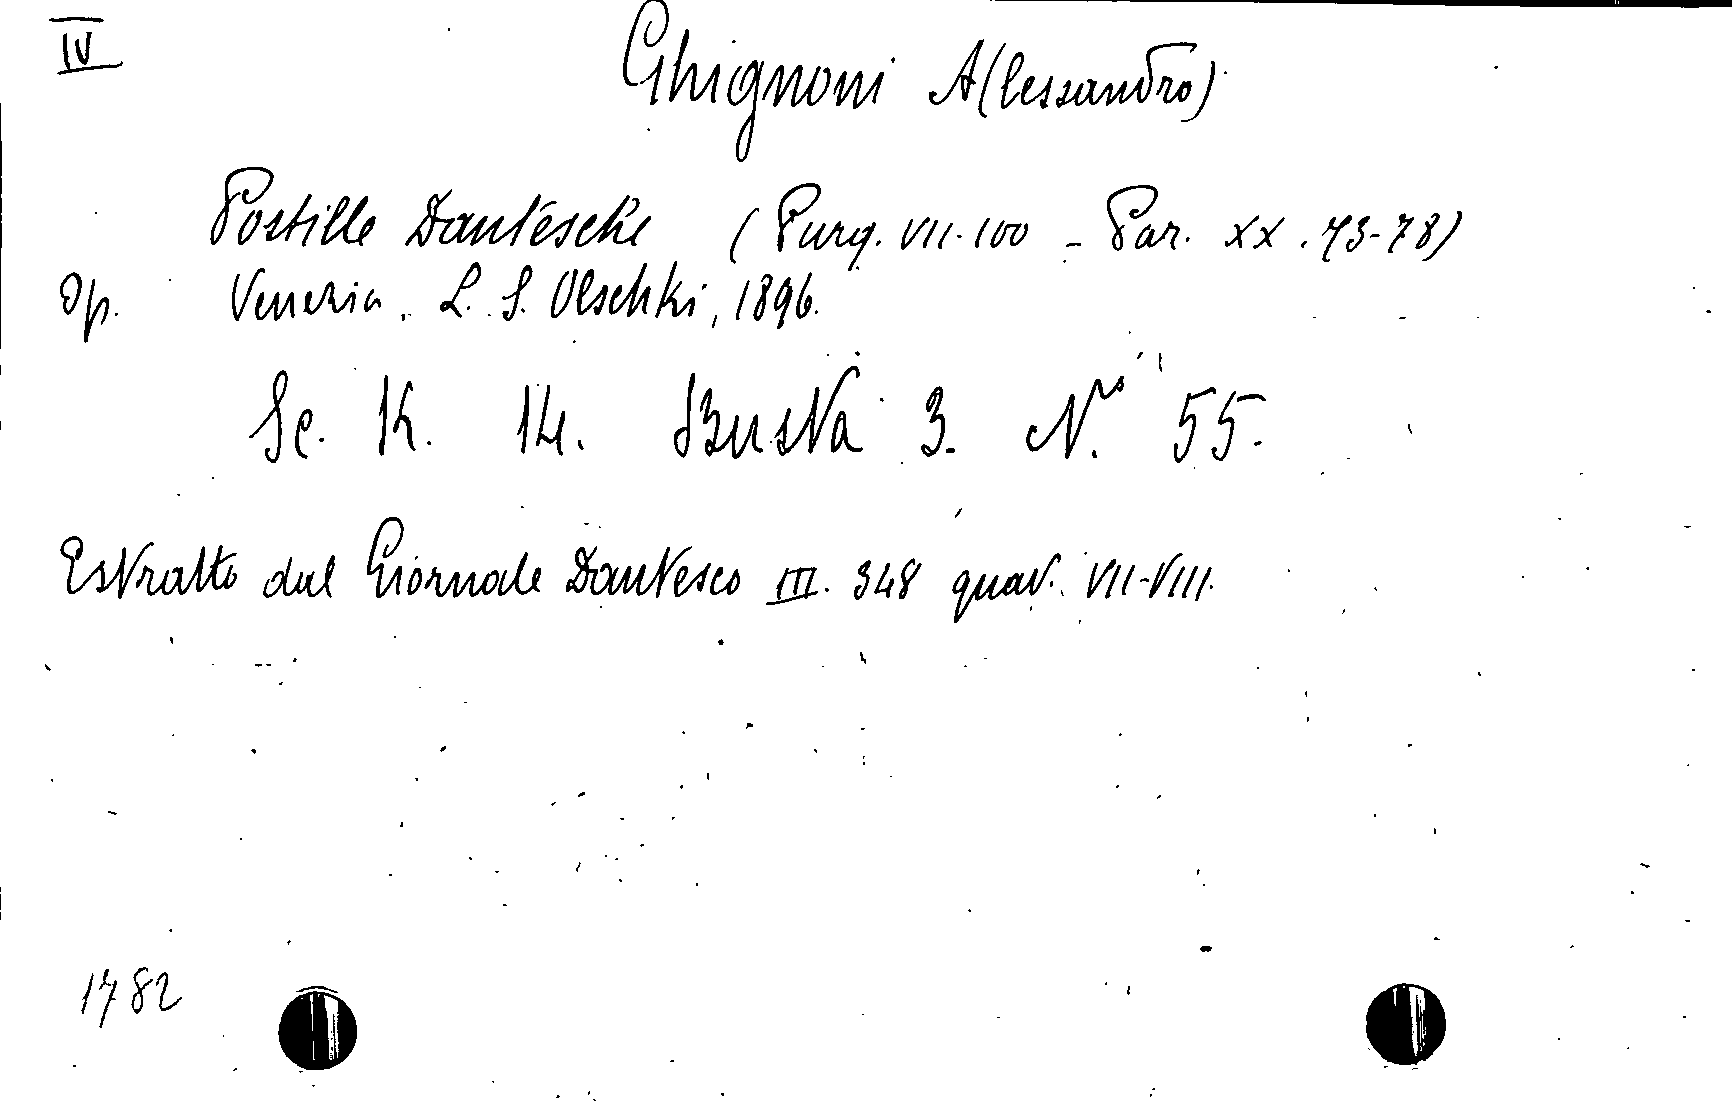 IV
Ghignoni A(lessandro)
Postille Dantesche (Purg. VII. 100 - Par. XX. 73-78)
Op. Venezia. L. S. Olschki, 1896.
Sc. K. 14. Busta 3. N.º 55.
Estratto dal Giornale Dantesco III. 348 quad. VII-VIII.
1782